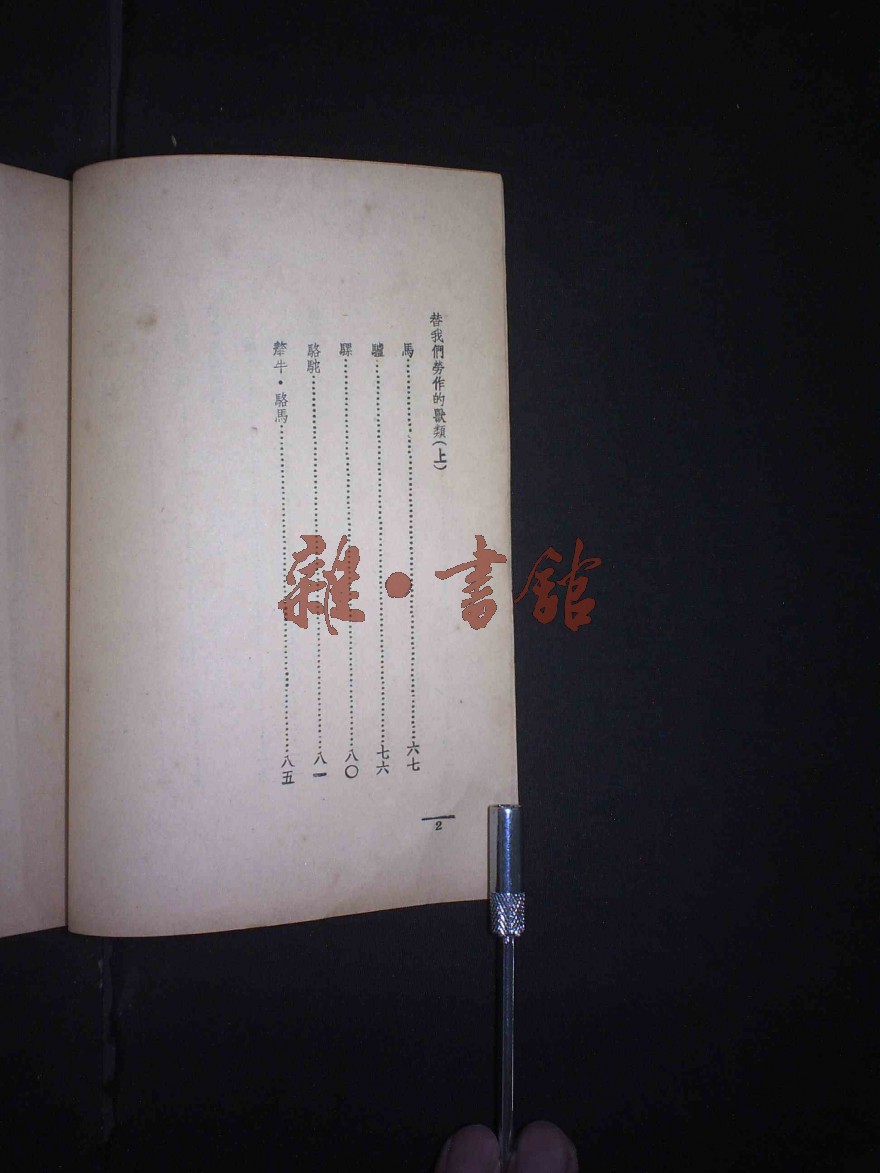 替我們勞作的獸類(上)
馬……六七
驢……七六
騾……八〇
駱駝……八一
犛牛・駱馬……八五
2
雜・書館